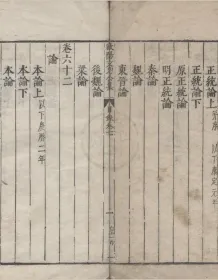 正統論上 以下康定元年
正統論下
原正統論
明正統論
秦論
魏論
東晉論
後魏論
梁論
卷六十二
論
本論上 以下慶曆二年
本論下
本論